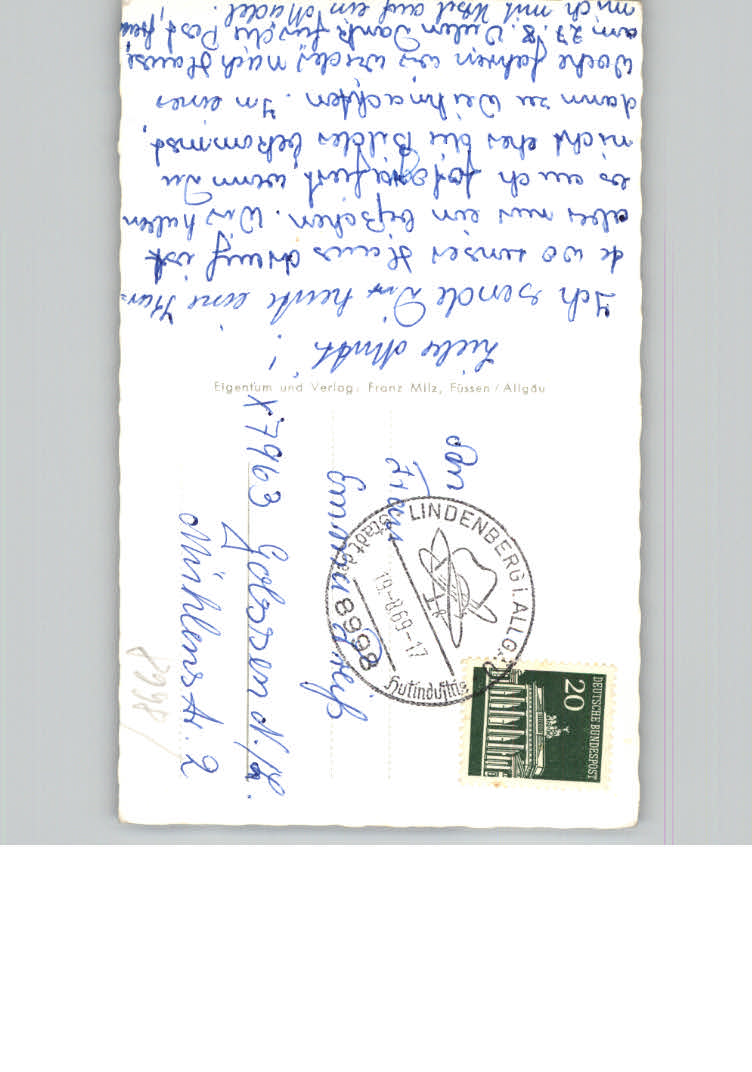 Liebe Mutti!
Ich sende Dir heute eine Kar-
te wo unser Haus drauf ist
aber nur ein bißchen. Wir haben
es auch fotografiert wenn Du
nicht eher die Bilder bekommst,
dann zu Weihnachten. In einer
Woche fahren wir wieder nach Hause
am 27.8. Vielen Dank für die Post, freu
mich mit Uschi auf ein Mädel.
Eigentum und Verlag: Franz Milz, Füssen / Allgäu
An
Frau
Emma Preiß
X 7963 Golssen N/L.
Mühlenstr. 2
8998
LINDENBERG i. ALLGÄU
19.-8.69-17
8998
Stadt der
Hutindustrie
DEUTSCHE BUNDESPOST
20